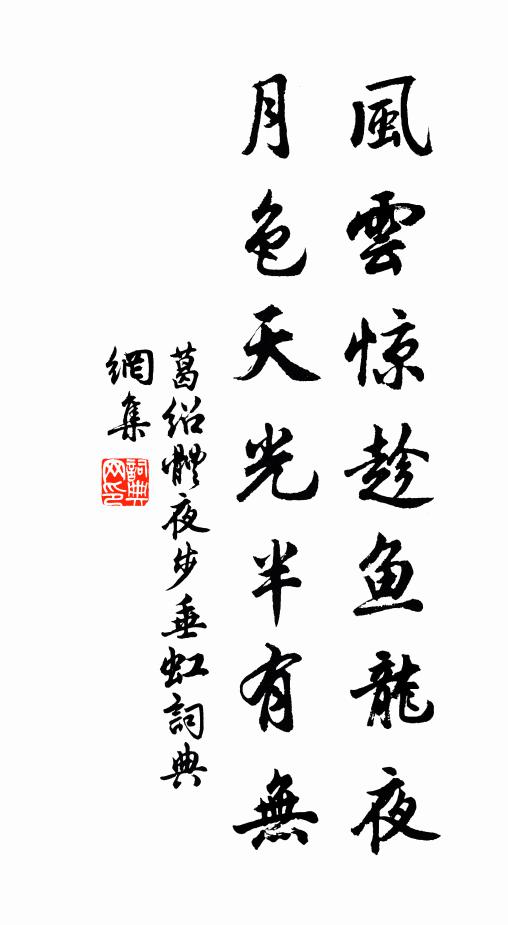 風雲惊趁鱼龍夜
月色天光半有無
葛绍體夜步垂虹詞典
網集
詞典
网印